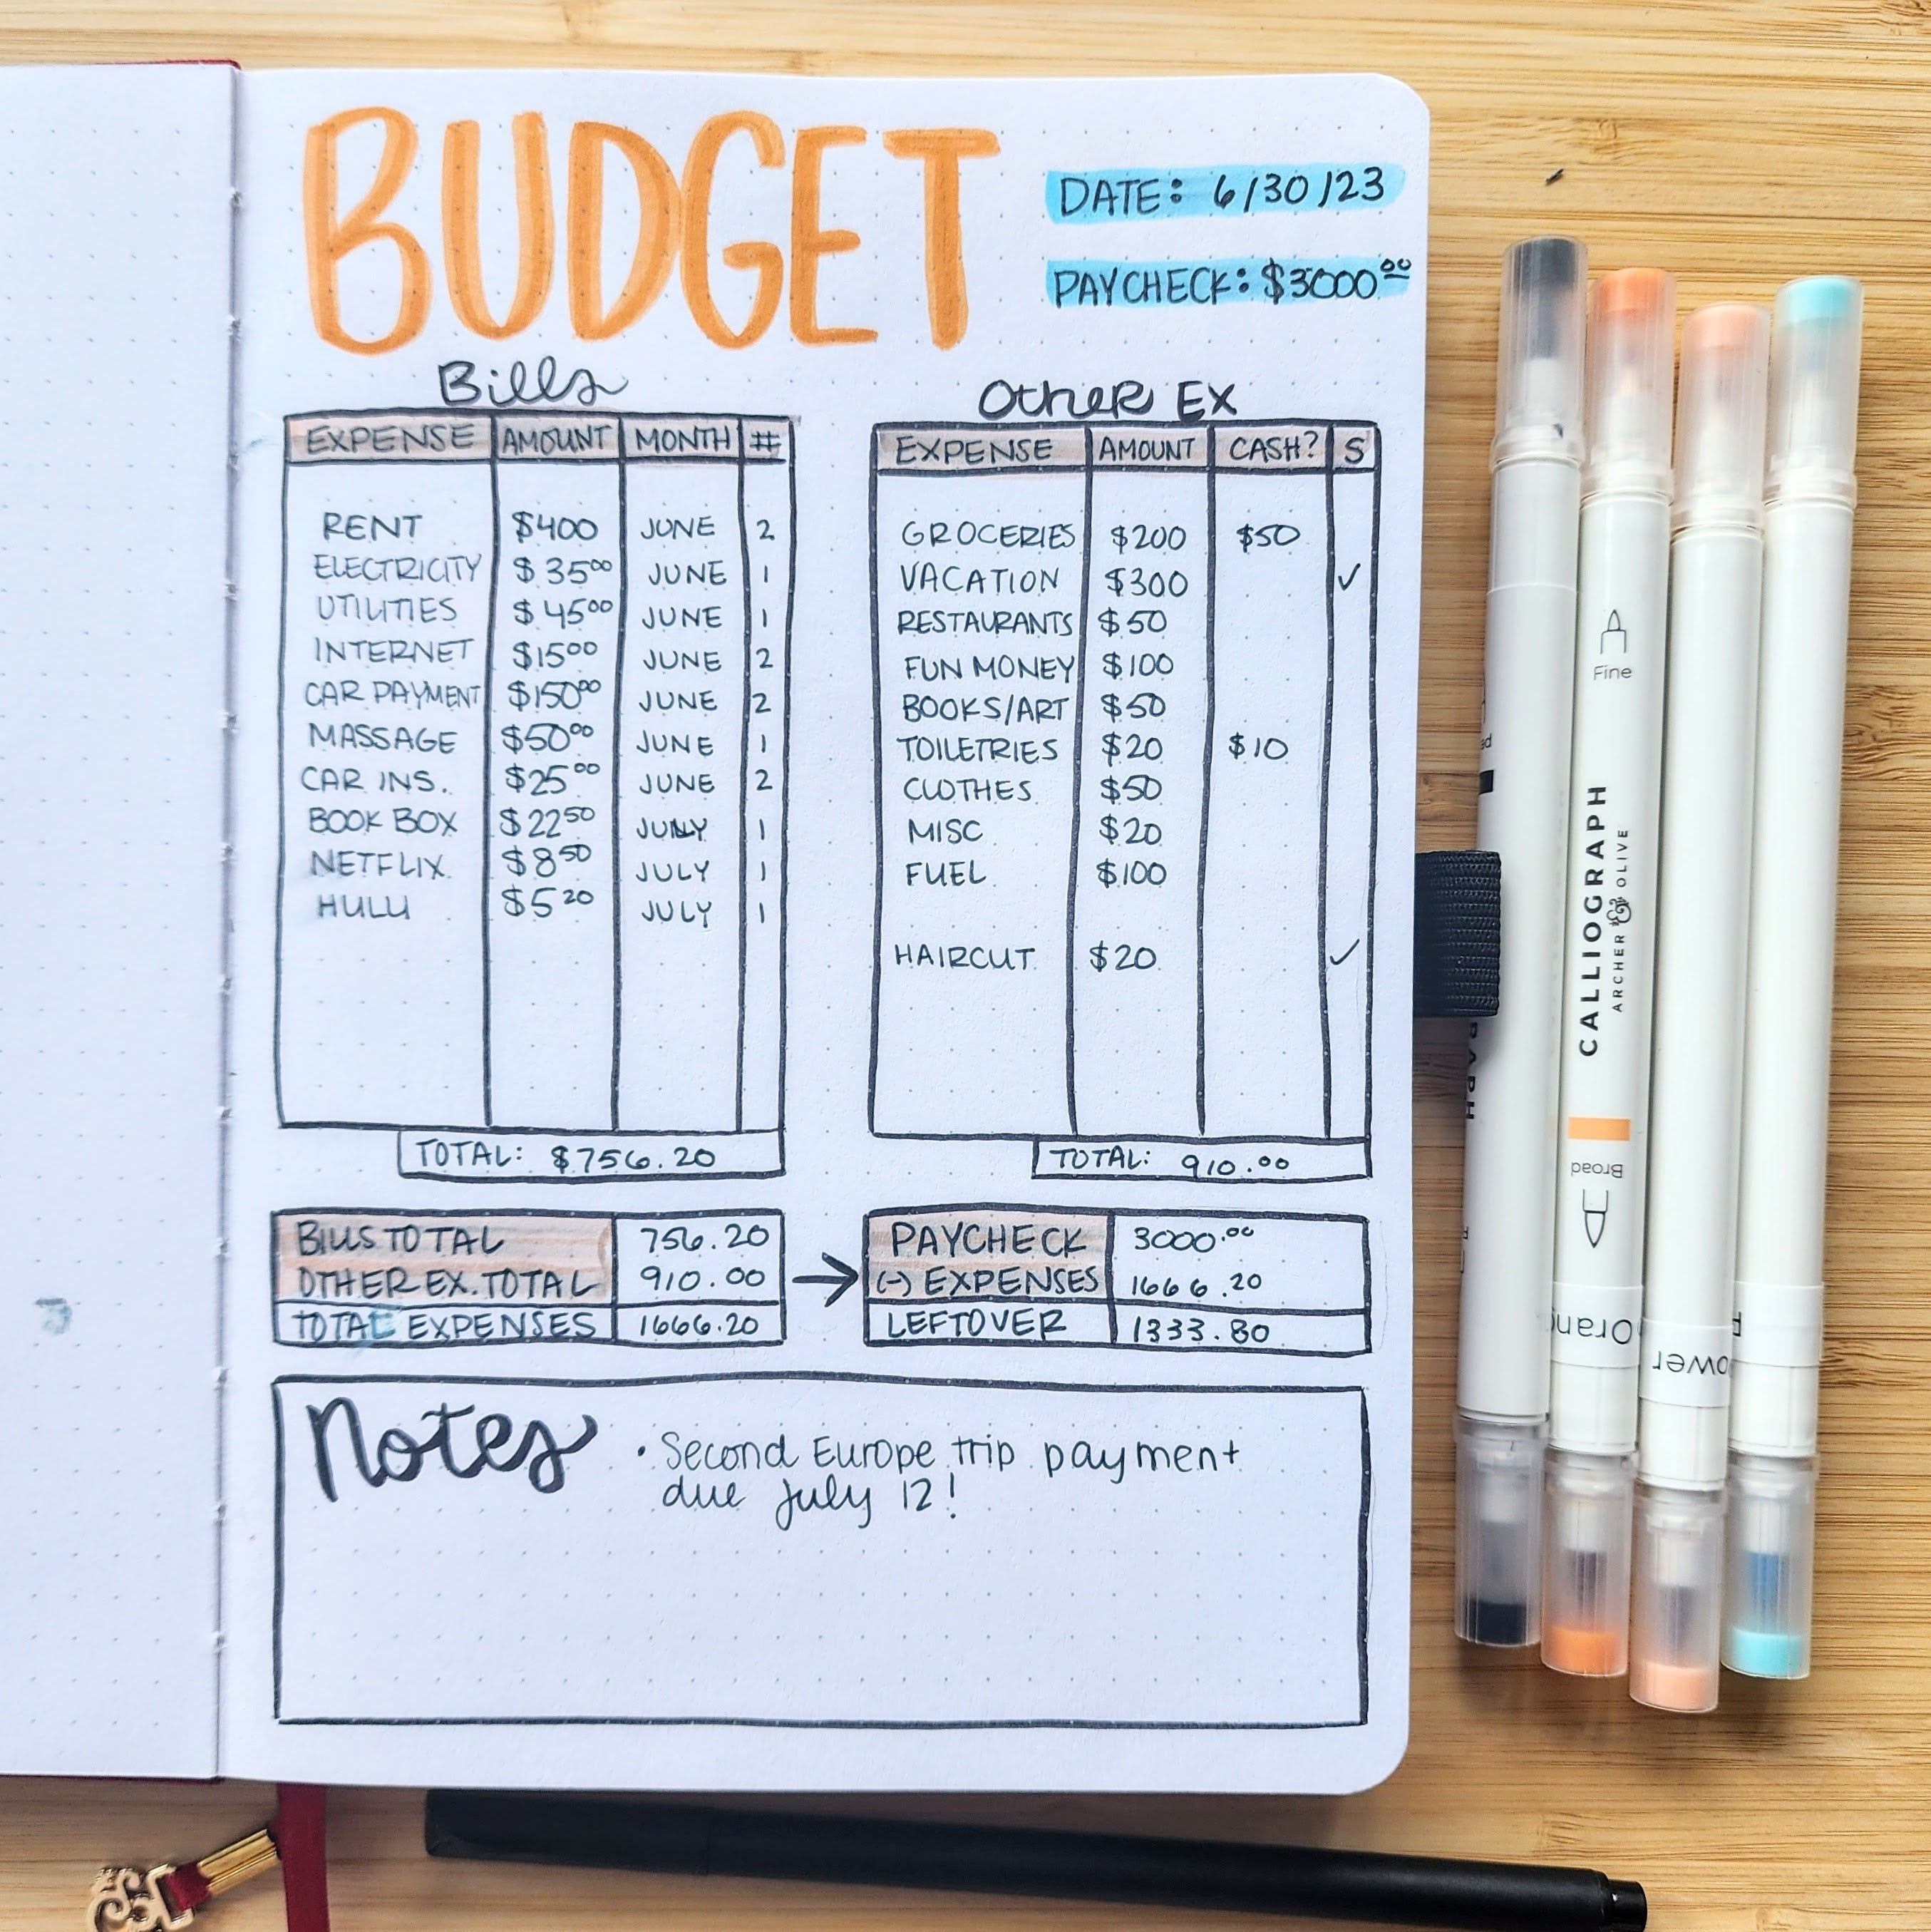 BUDGET
DATE: 6/30/23
PAYCHECK: $3000.00
Bills
EXPENSE AMOUNT MONTH #
RENT $400 JUNE 2
ELECTRICITY $35.00 JUNE 1
UTILITIES $45.00 JUNE 1
INTERNET $15.00 JUNE 2
CAR PAYMENT $150.00 JUNE 2
MASSAGE $50.00 JUNE 1
CAR INS. $25.00 JUNE 2
BOOK BOX $22.50 JULY 1
NETFLIX $8.50 JULY 1
HULU $5.20 JULY 1
TOTAL: $756.20
Other EX
EXPENSE AMOUNT CASH? S
GROCERIES $200 $50
VACATION $300 ✓
RESTAURANTS $50
FUN MONEY $100
BOOKS/ART $50
TOILETRIES $20 $10
CLOTHES $50
MISC $20
FUEL $100
HAIRCUT $20 ✓
TOTAL: 910.00
BILLS TOTAL 756.20
OTHER EX. TOTAL 910.00
TOTAL EXPENSES 1666.20
→
PAYCHECK 3000.00
(-) EXPENSES 1666.20
LEFTOVER 1333.80
Notes
• Second Europe trip payment
due July 12!
Fine
CALLIOGRAPH
ARCHER & OLIVE
Broad